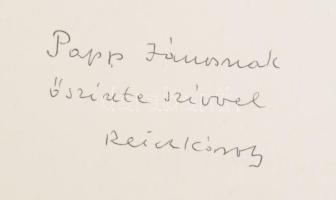 Papp Jánosnak
őszinte szívvel
Reich Károly